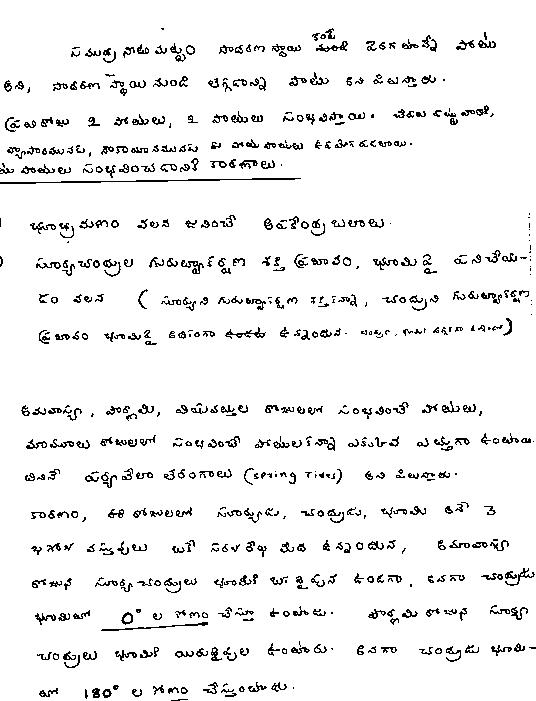 సముద్ర నీటి మట్టం సాధారణ స్థాయి కంటే పెరగటాన్ని పోటు
అని, సాధారణ స్థాయి నుండి తగ్గడాన్ని పాటు అని పిలుస్తారు.
ప్రతిరోజు 2 పోటులు, 2 పాటులు సంభవిస్తాయి. చేపలు పట్టువారికి,
వ్యాపారమునకు, నౌకాయానమునకు ఈ పోటుపాటులు ఉపయోగపడతాయి.
పోటులు సంభవించడానికి కారణాలు.
భూభ్రమణం వలన జనించే అపకేంద్ర బలాలు.
సూర్యచంద్రుల గురుత్వాకర్షణ శక్తి ప్రభావం, భూమిపై పనిచేయ-
డం వలన ( సూర్యుని గురుత్వాకర్షణ శక్తికన్నా, చంద్రుని గురుత్వాకర్షణ
ప్రభావం భూమిపై అధికంగా ఉండటం ఉన్నందున.
అమావాస్య, పౌర్ణమి, రోజులలో సంభవించే పోటులు,
మామూలు రోజులలో సంభవించే పోటులకన్నా ఎక్కువ ఎత్తుగా ఉంటాయి.
వీటినే పర్వవేలా తరంగాలు (spring Tides) అని పిలుస్తారు.
కారణం, ఈ రోజులలో సూర్యుడు, చంద్రుడు, భూమి అనే 3
ఖగోళ వస్తువులు ఒకే సరళరేఖ మీద ఉన్నందున, అమావాస్య
రోజున సూర్యచంద్రులు భూమికి ఒకే వైపున ఉండగా, అనగా చంద్రుడు
భూమితో 0° ల కోణం చేస్తూ ఉంటాడు. పౌర్ణమి రోజున సూర్య
చంద్రులు భూమికి యిరువైపుల ఉంటారు. అనగా చంద్రుడు భూమి-
తో 180° ల కోణం చేస్తుంటాడు.